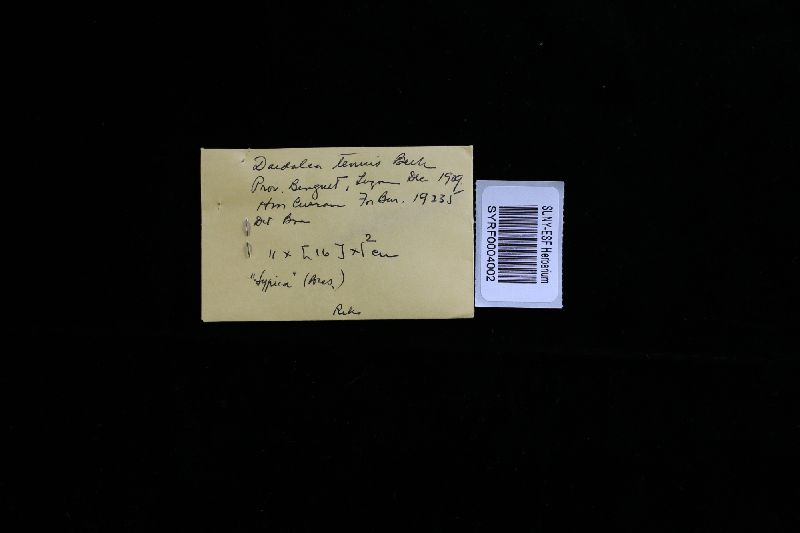 Daedalea tenuis Berk
Prov. Benguet, Luzon Dec 1909
Hm Curran For Bur. 19235
Det Bres
11 x [16] x 2 cm
"typica" (Bres.)
SUNY-ESF Herbarium
SYRF0004002